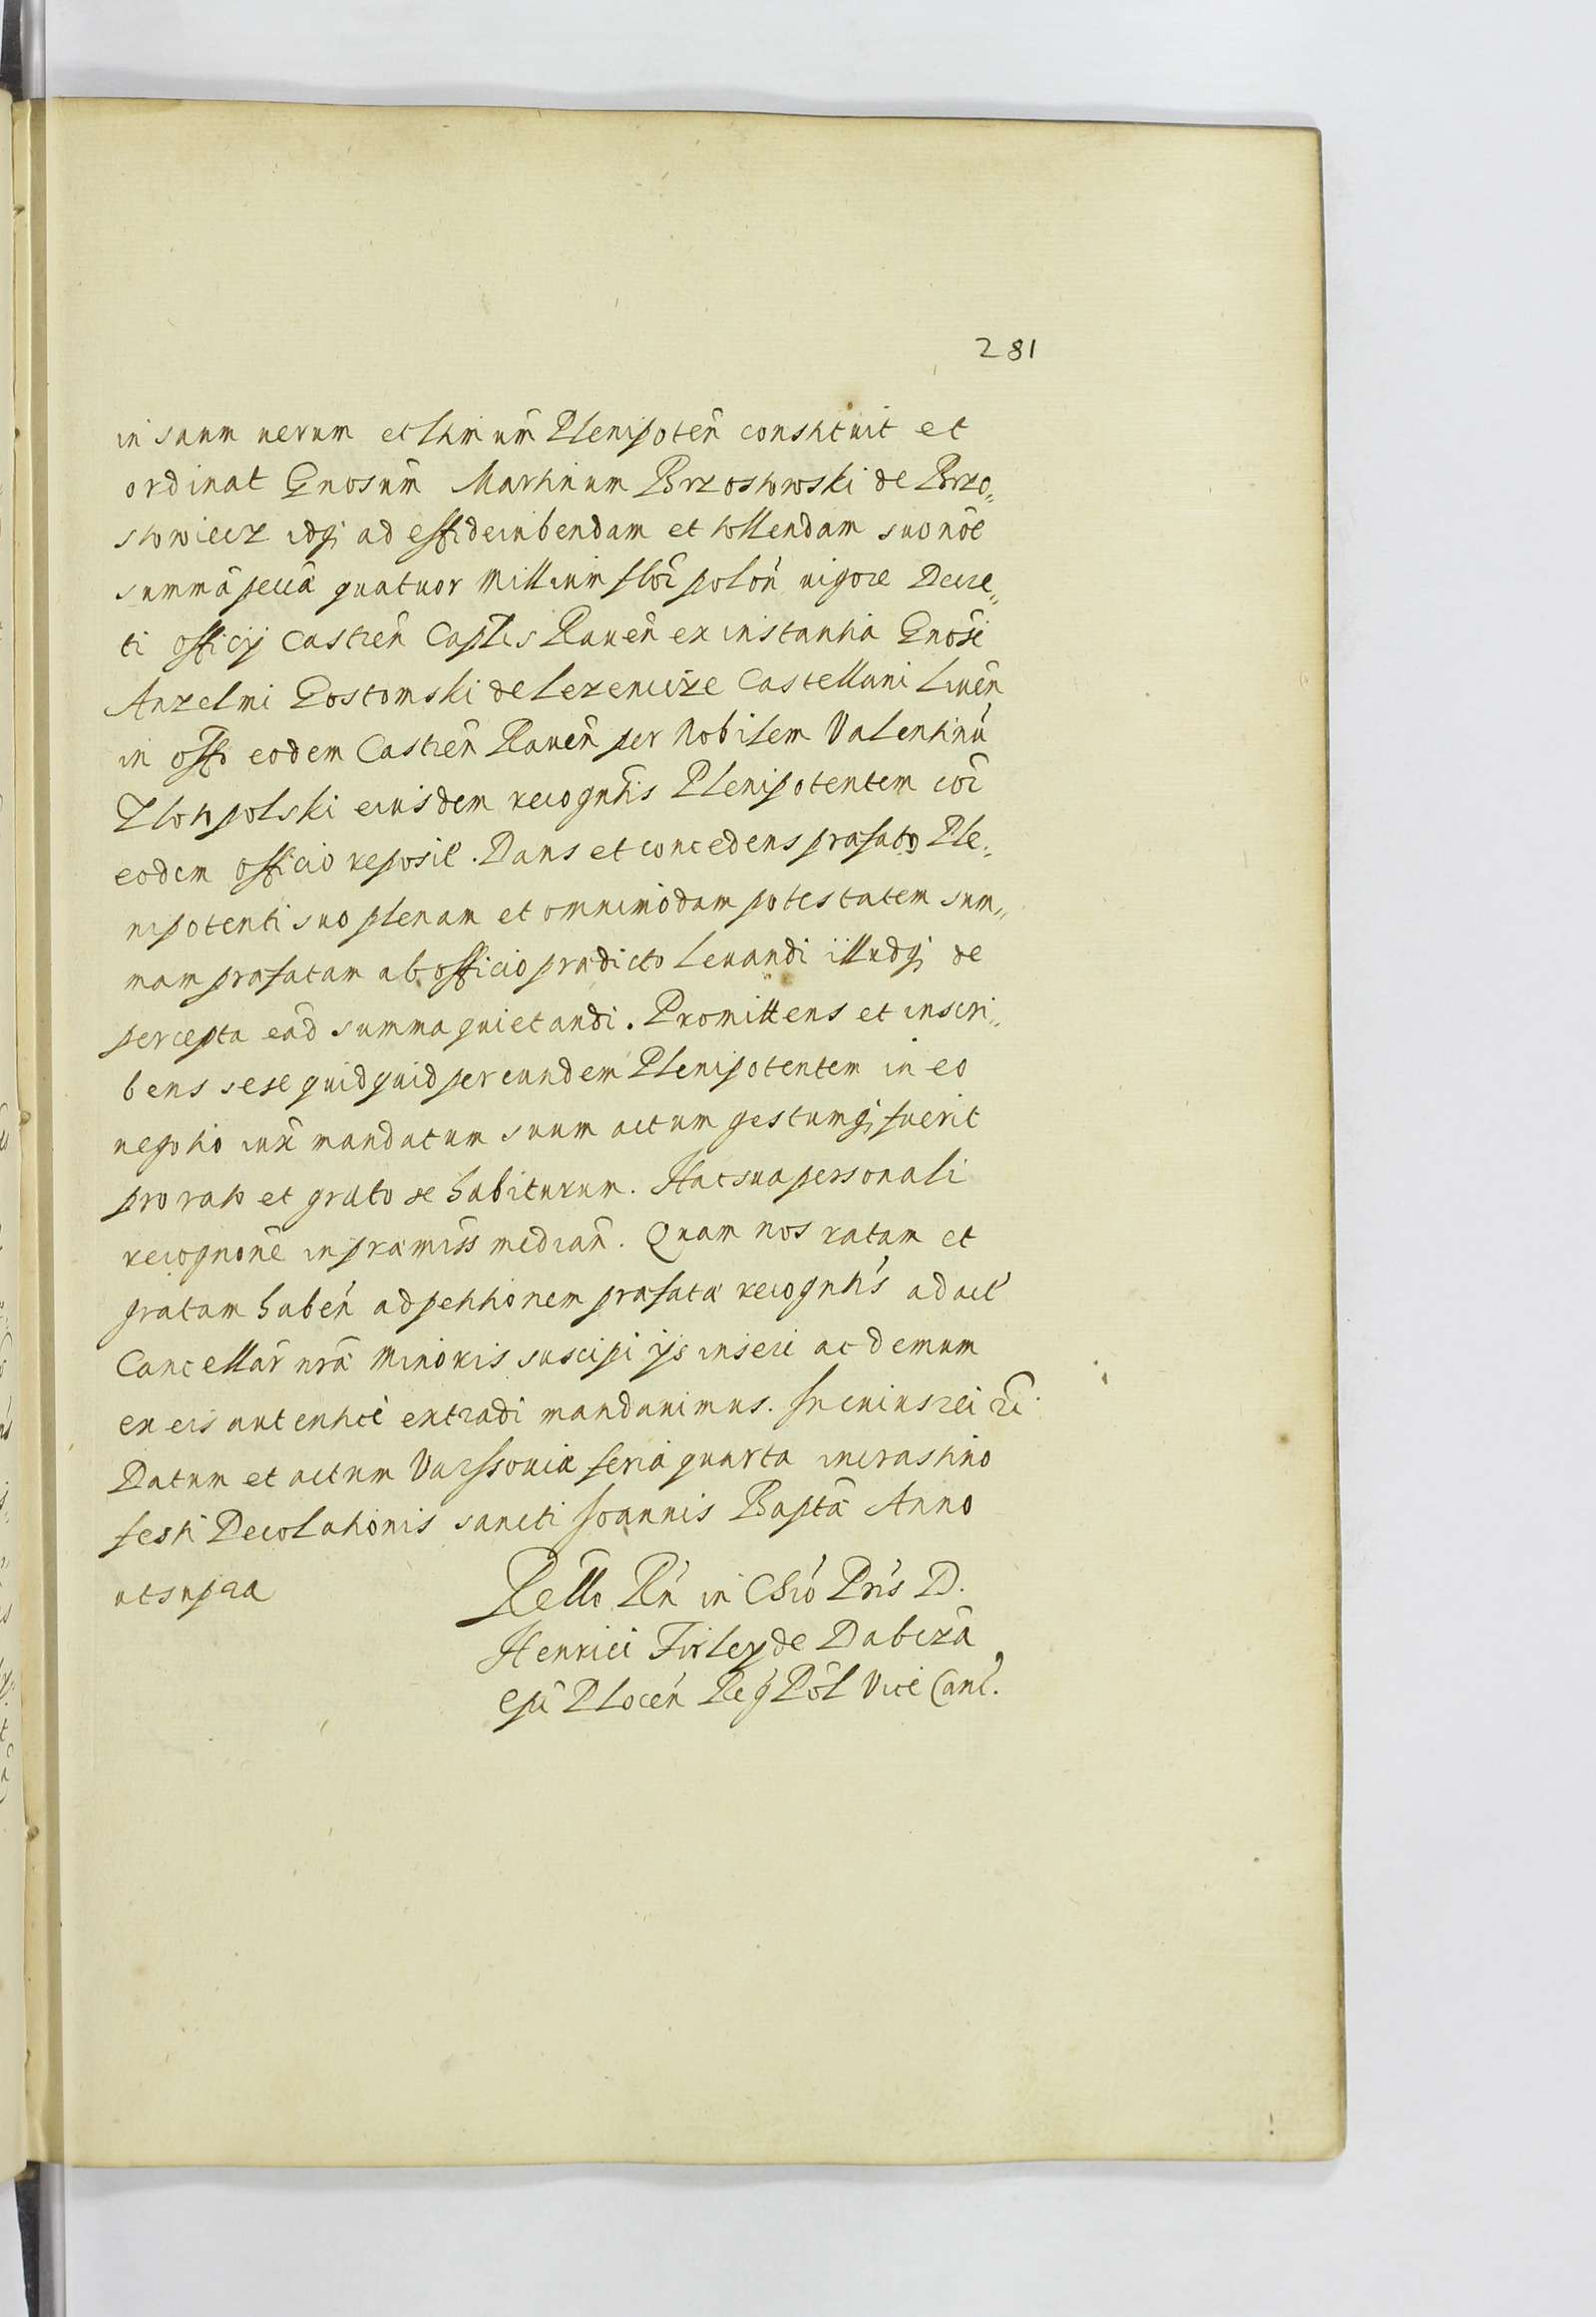 281
in suum uerum et lttimum Plenipoten̄ constituit et
ordinat Gnosum̄ Martinum Brzostowski de Brzo„
stowiecz idq; ad efft deinbendam et tollendam suo nōe
summā pecūa quatuor Millium flor̄ polon̄ uigore Decre„
ti officij Castren̄ Caplis Rauen̄ ex instantia Gnōsi
Anzelmi Gostomski de Lezenicze Castellani Liuen̄
in offo eodem Castren̄ Rauen̄ per Nobilem Valentinū
Zlotopolski eiusdem recognitis Plenipotentem cor̄
eodem officio reposit̄. Dans et concedens præfato Ple„
nipotenti suo plenam et omnimodam potestatem sum„
mam præfatam ab officio prædicto leuandi illudq; de
percepta eād summa quietandi. Promittens et inscri„
bens sese quidquid per eundem Plenipotentem in eo
negotio iux̄ mandatum suum actum gestumq; fuerit
pro rato et grato se habiturum. Hac sua personali
recognōne in præmiss̄ median̄. Quam nos ratam et
gratam haben̄ ad petitionem præfatæ recognitīs ad act̄
Cancellar̄ nrǣ Minoris suscipi ijs inseri ac demum
ex eis autentice extradi mandauimus. In cuius rei r̄i
Datum et actum Varssouiæ feria quarta in crastino
festi Decolationis sancti Joannis Baptǣ Anno
ut supra
Rello Rn̄ in Chr̄o Pr̄is D.
Henrici Firley de Dabrōa
Epī Plocen̄ Reḡ Pol̄ Vice Canc̄.